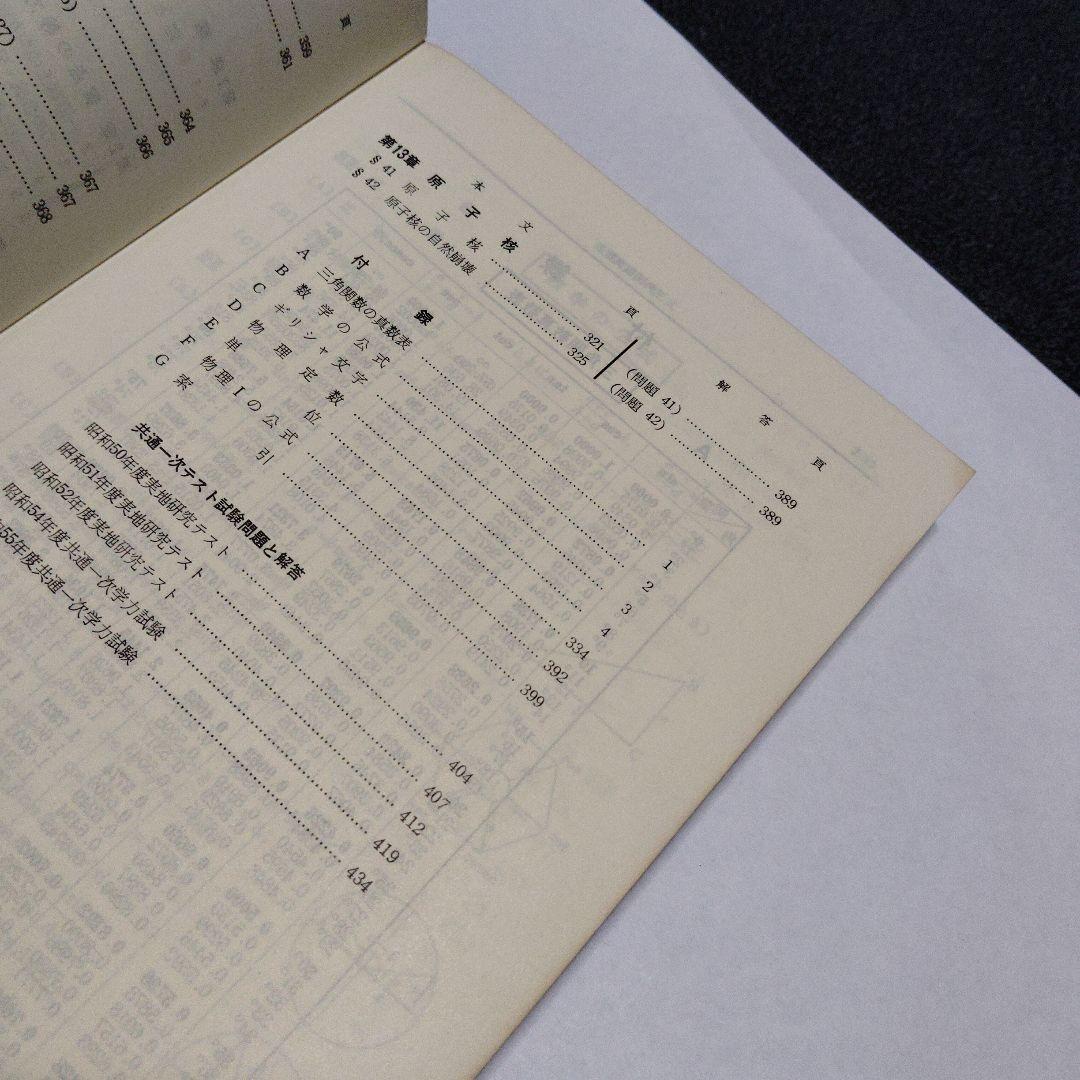 頁
359
361
364
365
366
367
367
368
本文 頁 解答 頁
第13章 原子核
§ 41 原子核 321 (問題 41) 389
§ 42 原子核の自然崩壊 325 (問題 42) 389
付録
A 三角関数の真数表 1
B 数学の公式 2
C ギリシャ文字 3
D 物理定数 4
E 単位 334
F 物理Iの公式 392
G 索引 399
共通一次テスト試験問題と解答
昭和50年度実地研究テスト 404
昭和51年度実地研究テスト 407
昭和52年度実地研究テスト 412
昭和54年度共通一次学力試験 419
55年度共通一次学力試験 434